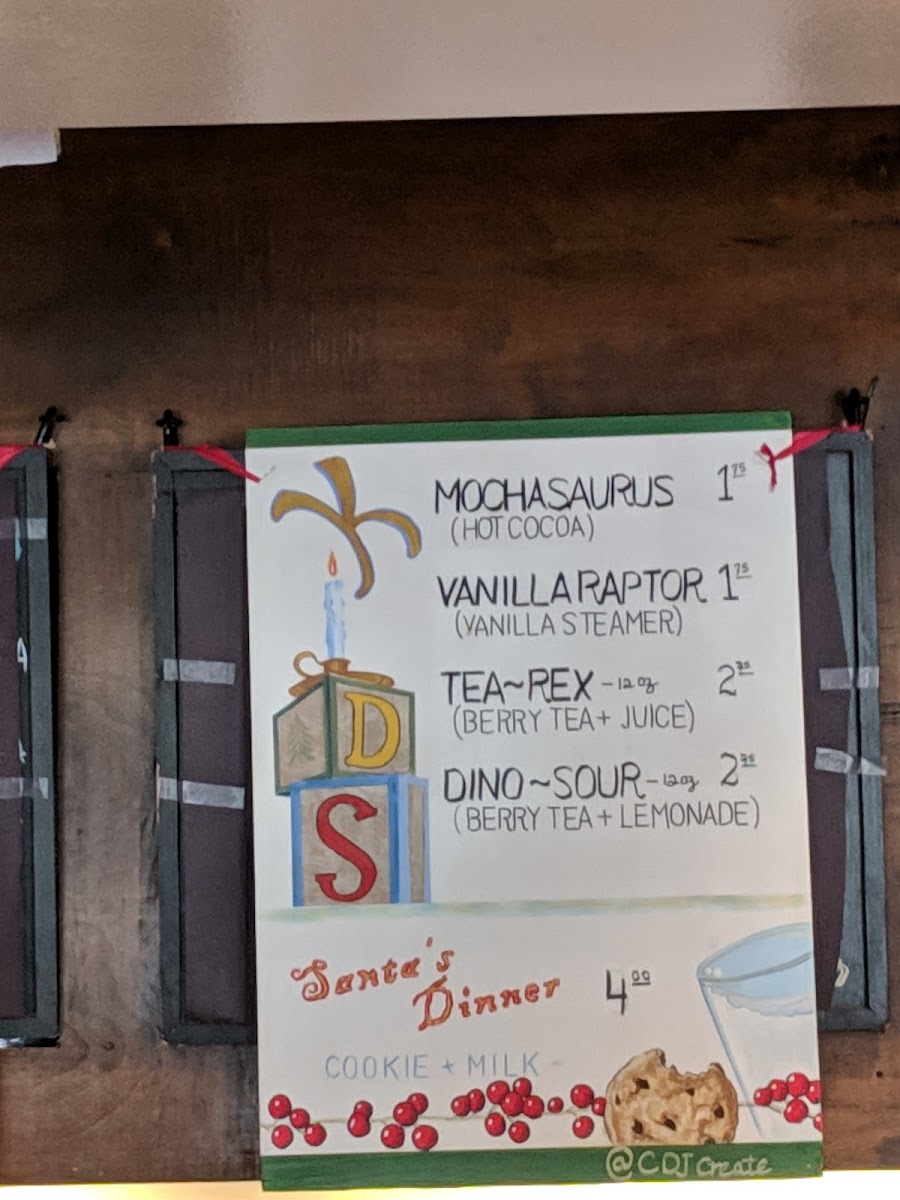 MOCHASAURUS 1 75
(HOT COCOA)
VANILLA RAPTOR 1 75
(VANILLA STEAMER)
TEA~REX - 12 oz 2
(BERRY TEA + JUICE)
DINO~SOUR - 12 oz 2
(BERRY TEA + LEMONADE)
D
S
Santa's
Dinner 4 00
COOKIE + MILK -
@CDJ create